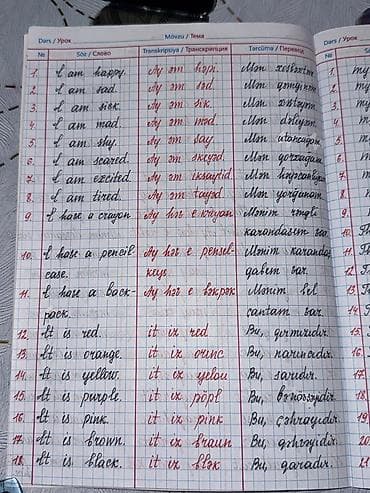 Dərs / Урок Mövzu / Тема
№ Söz / Слово Transkripsiya / Транскрипция Tərcümə / Перевод
1. I am happy. Ay əm həpi. Mən xoşbəxtəm
2. I am sad. Ay əm səd. Mən qəmginəm
3. I am sick. Ay əm sik. Mən xəstəyəm
4. I am mad. Ay əm məd. Mən dəliyəm.
5. I am shy. Ay əm şay. Mən utancağam.
6. I am scared. Ay əm skeyəd. Mən qorxağam.
7. I am excited Ay əm iksaytid. Mən həyəcanlıyam
8. I am tired. Ay əm tayəd. Mən yorğunam.
9. I have a crayon Ay həv e kreyən Mənim rəngli
karandaşım var.
10. I have a pencil Ay həv e pensel- Mənim karandaş
case. keys. qabım var.
11. I have a back- Ay həv e bəkpək Mənim bel
pack. çantam var.
12. It is red. it iz red Bu, qırmızıdır.
13. It is orange. it iz orinc Bu, narıncıdır.
14. It is yellow. it iz yelou Bu, sarıdır.
15. It is purple. it iz pöpl Bu, bənövşəyidir.
16. It is pink. it iz pink Bu, çəhrayıdır.
17. It is brown. it iz braun Bu, qəhvəyidir.
18. It is black. it iz blək Bu, qaradır.